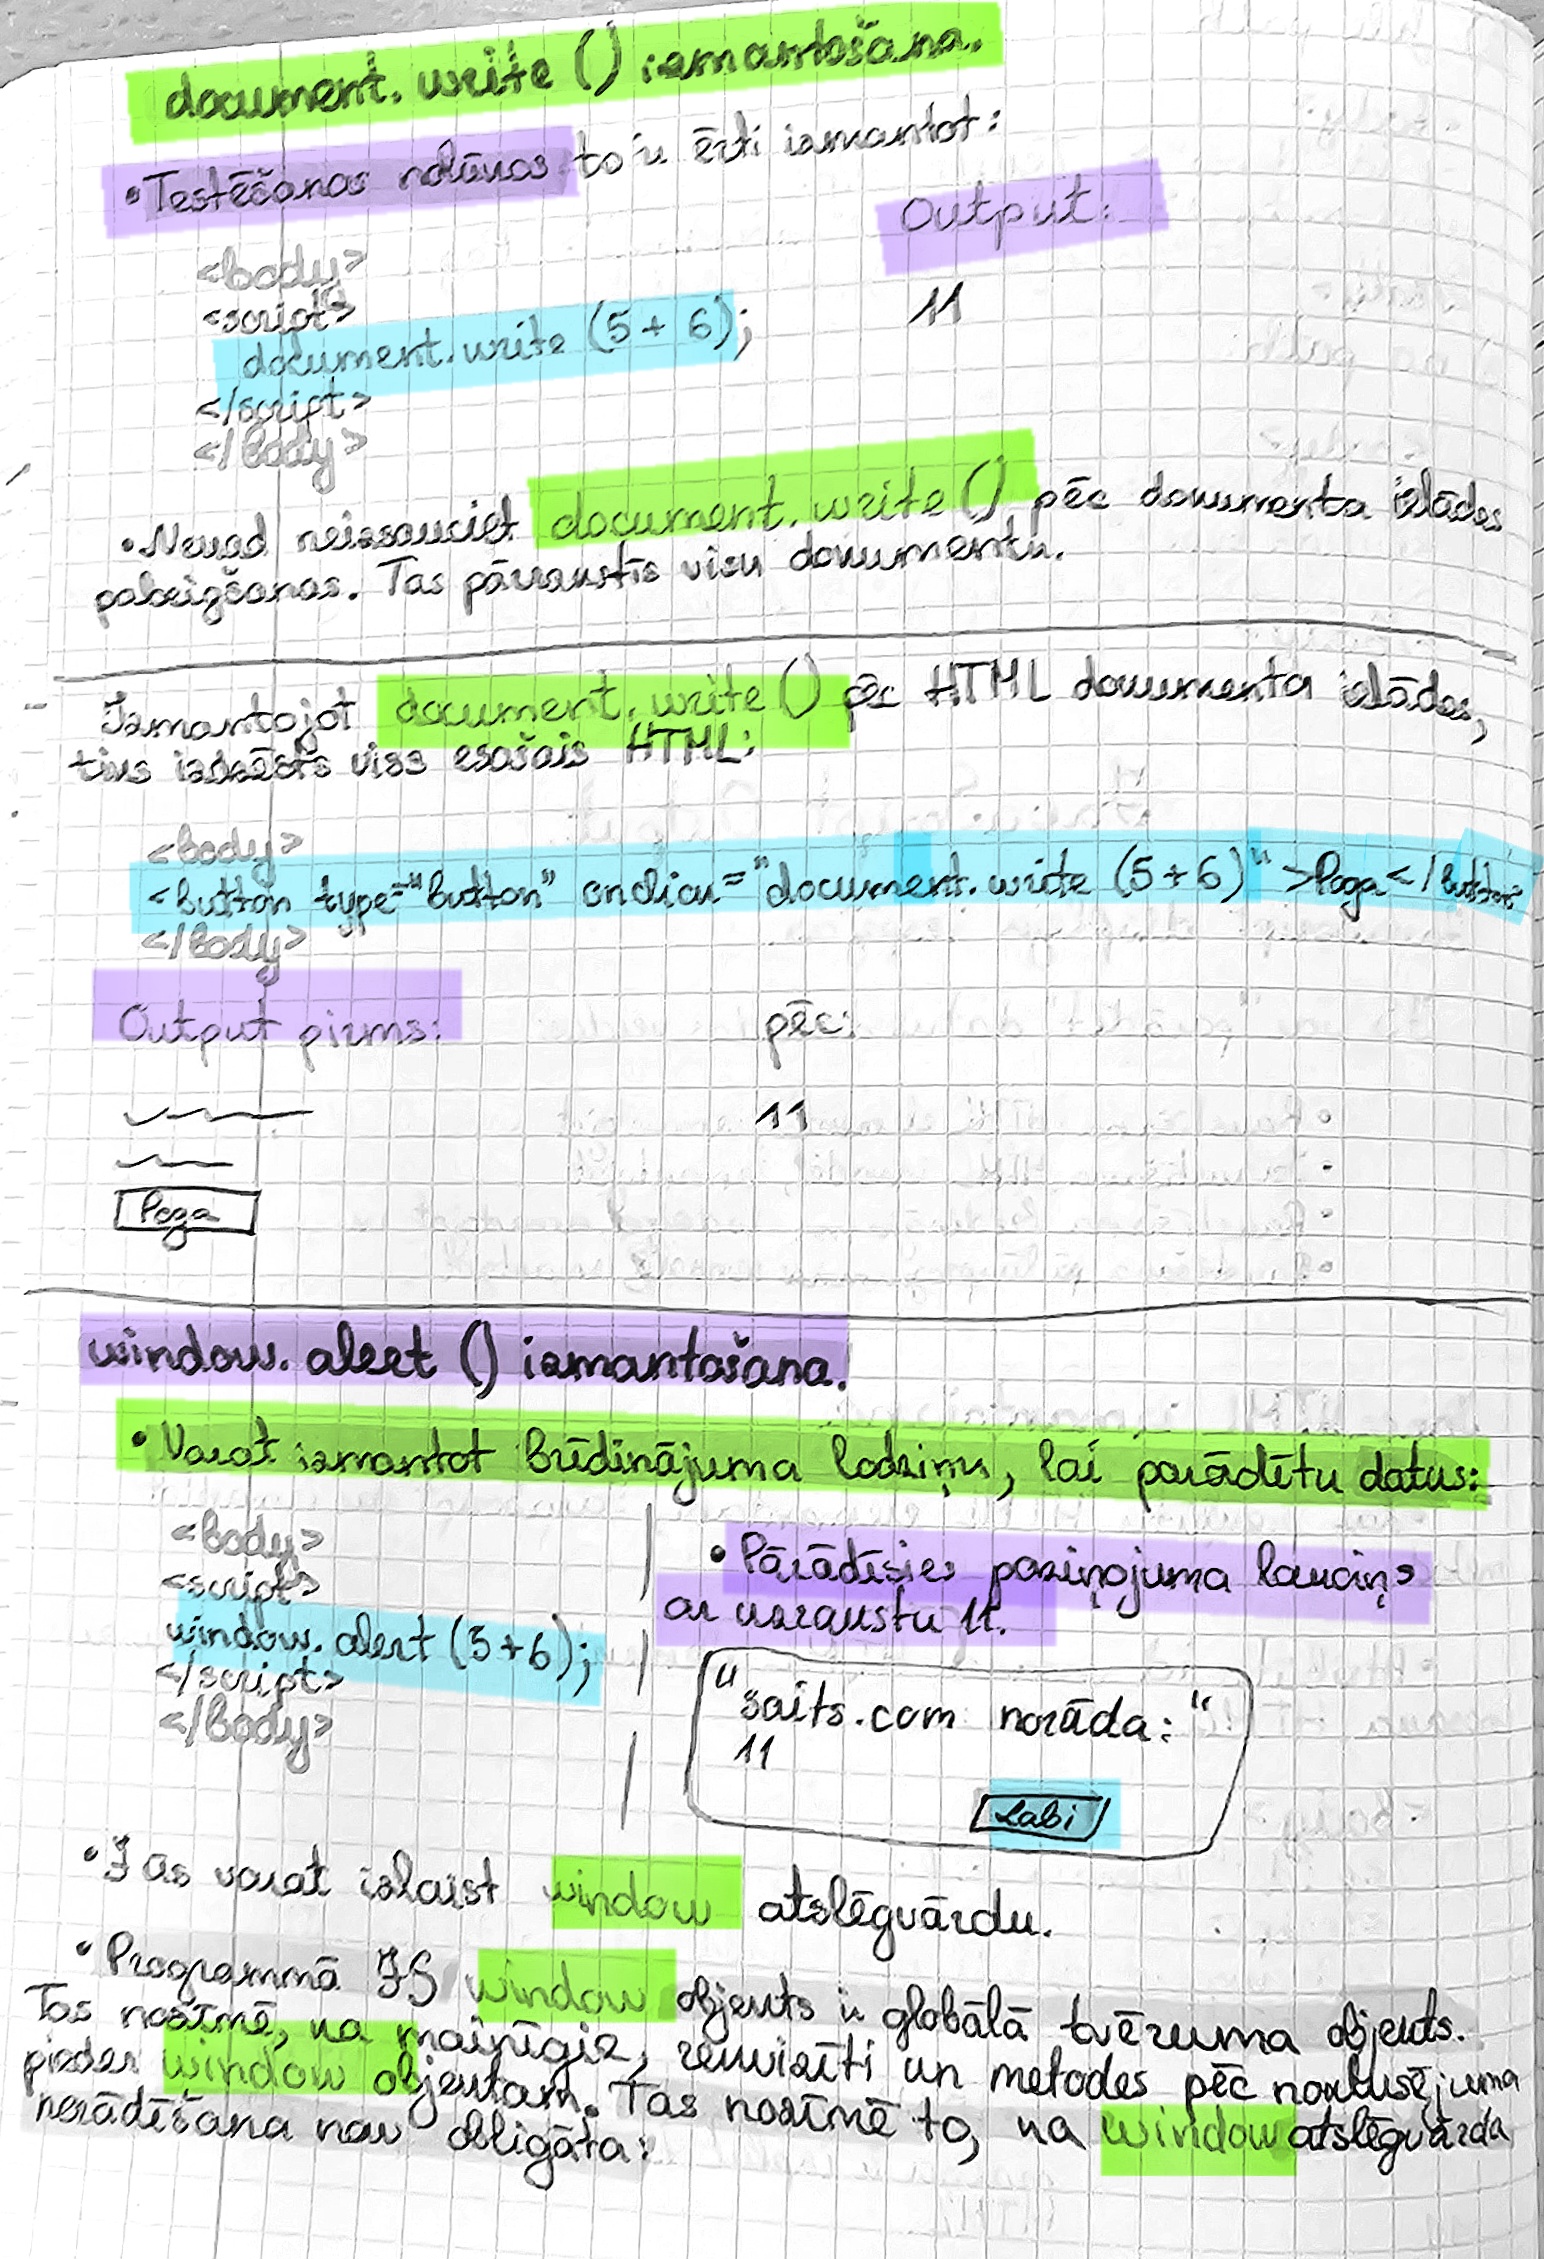 document.write() izmantošana.
•Testēšanas nolūkos to ir ērti izmantot:
Output:
<body>
<script>
document.write (5 + 6);
11
</script>
</body>
•Nekad neizsauciet document.write() pēc dokumenta ielādes
pabeigšanas. Tas pārrakstīs visu dokumentu.
Izmantojot document.write() pēc HTML dokumenta ielādes,
tiks izdzēsts viss esošais HTML:
<body>
<button type="button" onclick="document.write (5+6)" >Poga</button>
</body>
Output pirms: pēc:
11
Poga
window.alert () izmantošana.
• Varat izmantot brīdinājuma lodziņu, lai parādītu datus:
<body>
<script>
window.alert (5+6);
</script>
</body>
• Pārādīsies paziņojuma lauciņš
ar uzrakstu 11.
"saits.com norāda:"
11
Labi
•Jūs varat izlaist window atslēgvārdu.
•Programmā JS window objekts ir globālā tvēruma objekts.
Tas nozīmē, ka mainīgie, rekvizīti un metodes pēc noklusējuma
pieder window objektam. Tas nozīmē to, ka window atslēgvārda
norādīšana nav obligāta: